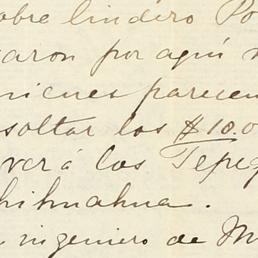 obre lindero Po
aron por aquí
nienes parecen
soltar los $10.0
ver á los Tepeg
hihuahua.
ingeniero de M